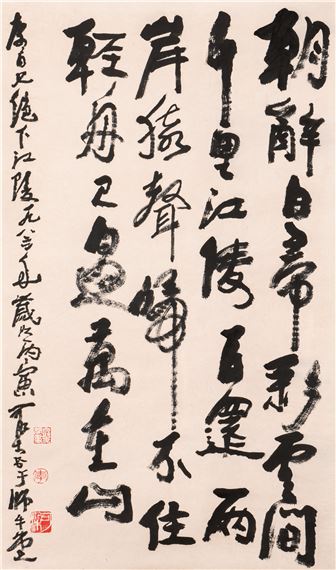 朝辭白帝彩雲間
千里江陵一日還兩
岸猿聲啼不住
輕舟已過萬重山
李白七絕下江陵一九八六年歲次丙寅可染書于師牛堂